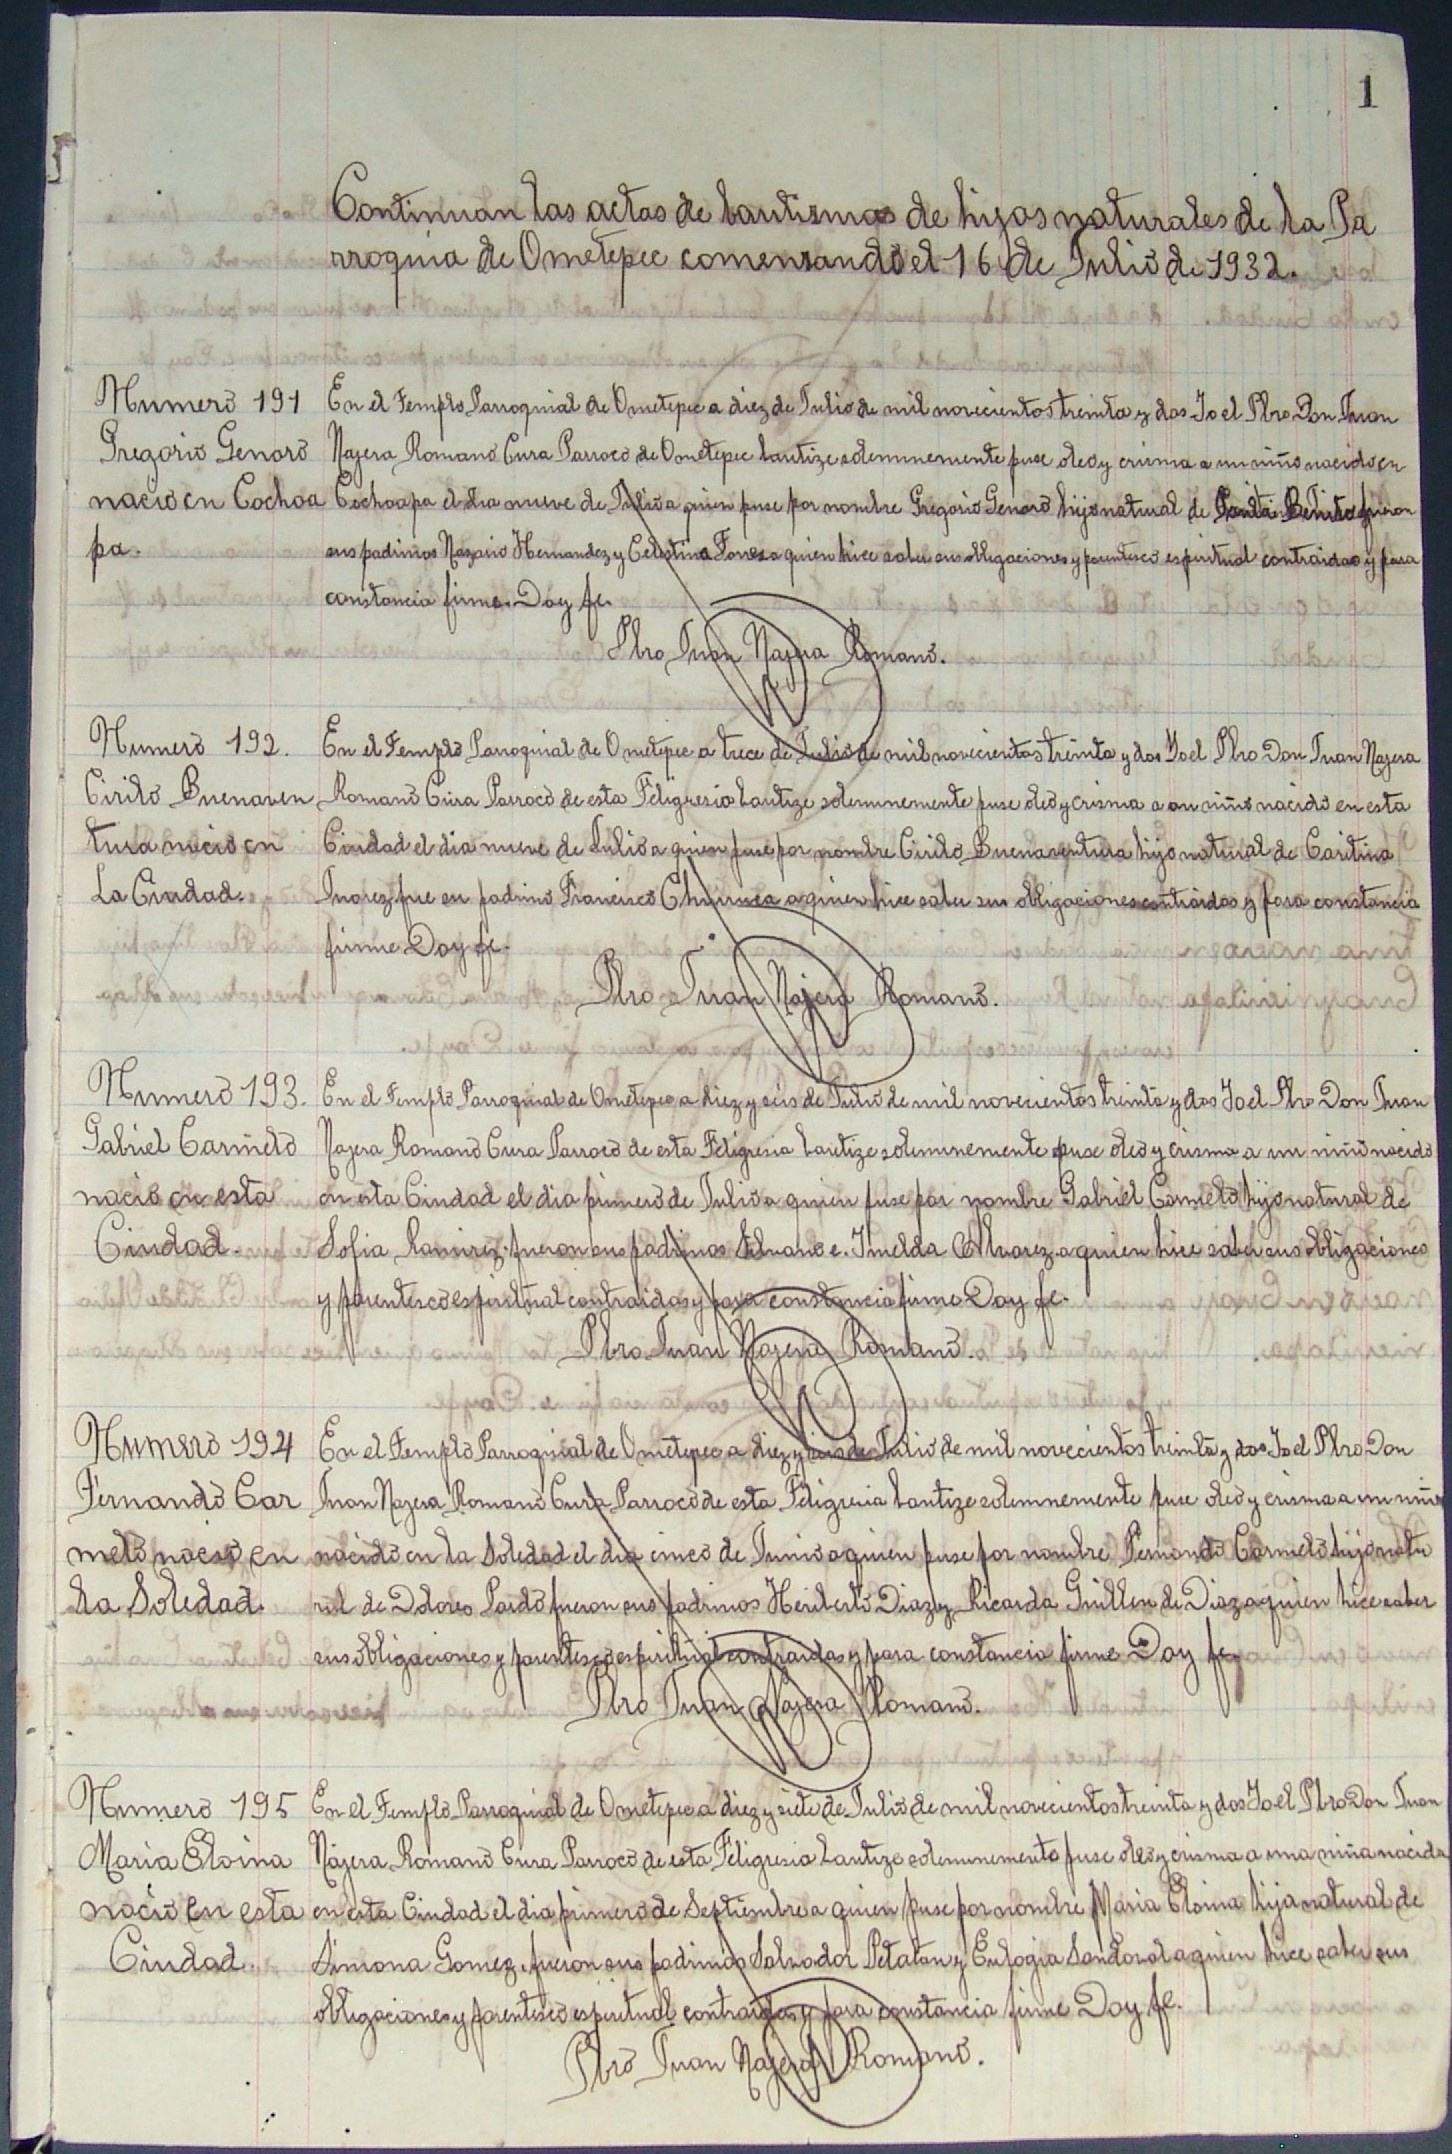 1
Continuan las actas de bautismos de hijos naturales de la Pa
rroquia de Ometepec comenzando el 16 de Julio de 1932.
Numero 191
Gregorio Genaro
nacio en Cochoa
pa.
En el Templo Parroquial de Ometepec a diez de Julio de mil novecientos treinta y dos Yo el Pbro Don Juan
Najera Romano Cura Parroco de Ometepec bautize solemnemente puse oleo y crisma a un niño nacido en
Cochoapa el dia nueve de Julio a quien puse por nombre Gregorio Genaro hijo natural de Benita fueron
sus padrinos Nazario Hernandez y Celestina a quien hice saber sus obligaciones y parentesco espiritual contraidas y para
constancia firme. Doy fe.
Pbro Juan Najera Romano.
Numero 192.
Cirilo Buenaven
tura nacio en
La Ciudad.
En el Templo Parroquial de Ometepec a trece de Julio de mil novecientos treinta y dos Yo el Pbro Don Juan Najera
Romano Cura Parroco de esta Feligresia bautize solemnemente puse oleo y crisma a un niño nacido en esta
Ciudad el dia nueve de Julio a quien puse por nombre Cirilo Buenaventura hijo natural de Caritina
Juarez fue su padrino Francisco a quien hice saber sus obligaciones contraidas y para constancia
firme Doy fe.
Pbro Juan Najera Romano.
Numero 193.
Gabriel Carmelo
nacio en esta
Ciudad.
En el Templo Parroquial de Ometepec a diez y seis de Julio de mil novecientos treinta y dos Yo el Pbro Don Juan
Najera Romano Cura Parroco de esta Feligresia bautize solemnemente puse oleo y crisma a un niño nacido
en esta Ciudad el dia primero de Julio a quien puse por nombre Gabriel Carmelo hijo natural de
Sofia Ramirez, fueron sus padrinos Silvano e. Imelda Alvarez a quien hice saber sus obligaciones
y parentesco espiritual contraidas y para constancia firme Doy fe.
Pbro Juan Najera Romano.
Numero 194
Fernando Car
melo nacio en
la Soledad.
En el Templo Parroquial de Ometepec a diez y seis de Julio de mil novecientos treinta y dos Yo el Pbro Don
Juan Najera Romano Cura Parroco de esta Feligresia bautize solemnemente puse oleo y crisma a un niño
nacido en la Soledad el dia cinco de Junio a quien puse por nombre Fernando Carmelo hijo natu
ral de Dolores Pardo fueron sus padrinos Heriberto Diaz y Ricarda Guillen de Diaz a quien hice saber
sus obligaciones y parentesco espiritual contraidas y para constancia firme Doy fe.
Pbro Juan Najera Romano.
Numero 195
Maria Eloina
nacio en esta
Ciudad.
En el Templo Parroquial de Ometepec a diez y siete de Julio de mil novecientos treinta y dos Yo el Pbro Don Juan
Najera Romano Cura Parroco de esta Feligresia bautize solemnemente puse oleo y crisma a una niña nacida
en esta Ciudad el dia primero de Septiembre a quien puse por nombre Maria Eloina hija natural de
Simona Gomez, fueron sus padrinos Salvador Petatan y Eulogia Sandoval a quien hice saber sus
obligaciones y parentesco espiritual contraidas y para constancia firme Doy fe.
Pbro Juan Najera Romano.